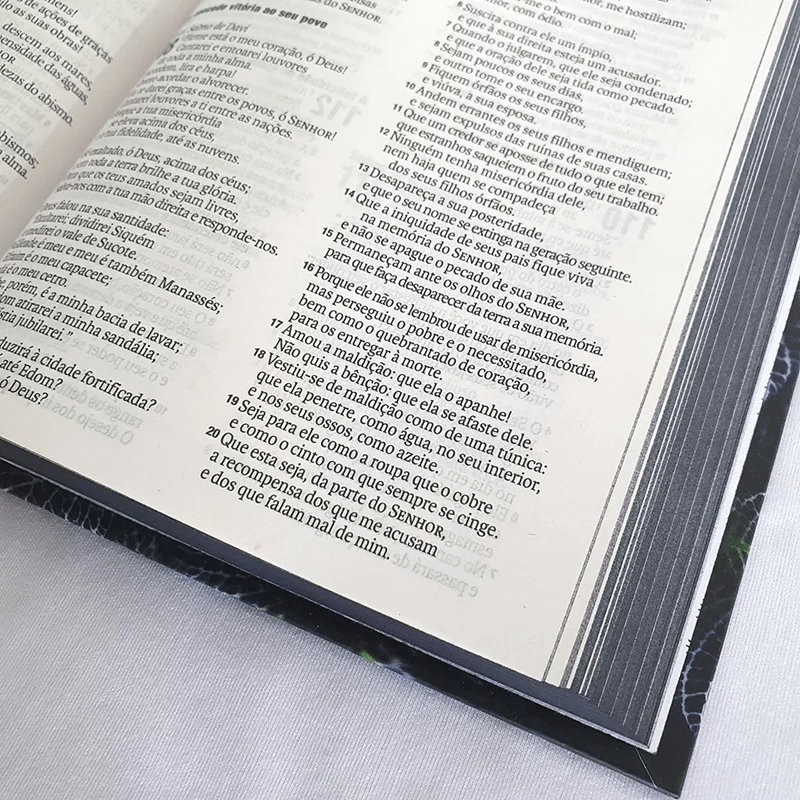 de ações de graças
suas obras!
descem aos mares,
das águas,
do abismo.
abismos;
alma.
vitória ao seu povo
Salmo de Davi
Firme está o meu coração, ó Deus!
Cantarei e entoarei louvores
toda a minha alma.
lira e harpa!
acordar o alvorecer.
darei graças entre os povos, ó SENHOR!
louvores a ti entre as nações.
a tua misericórdia
se eleva acima dos céus,
tua fidelidade, até as nuvens.
exaltado, ó Deus, acima dos céus;
em toda a terra brilhe a tua glória.
que os teus amados sejam livres,
com a tua mão direita e responde-nos.
Deus falou na sua santidade:
"Exultarei; dividirei Siquém
e medirei o vale de Sucote.
é meu e meu é também Manassés;
Efraim é o meu capacete;
é o meu cetro.
porém, é a minha bacia de lavar;
atirarei a minha sandália;
jubilarei."
à cidade fortificada?
até Edom?
ó Deus?
SENHOR.
me o bem com o mal;
com ódio.
me hostilizam;
6 Suscita contra ele um ímpio,
e que à sua direita esteja um acusador.
7 Quando o julgarem, que ele seja condenado;
e que a oração dele seja tida como pecado.
8 Sejam poucos os seus dias,
e outro tome o seu encargo.
9 Fiquem órfãos os seus filhos,
e viúva, a sua esposa.
10 Andem errantes os seus filhos e mendiguem;
e sejam expulsos das ruínas de suas casas.
11 Que um credor se aposse de tudo o que ele tem;
que estranhos saqueiem o fruto do seu trabalho.
12 Ninguém tenha misericórdia dele,
nem haja quem se compadeça
dos seus filhos órfãos.
13 Desapareça a sua posteridade,
e que o seu nome se extinga na geração seguinte.
14 Que a iniquidade de seus pais fique viva
na memória do SENHOR,
e não se apague o pecado de sua mãe.
15 Permaneçam ante os olhos do SENHOR,
para que faça desaparecer da terra a sua memória.
16 Porque ele não se lembrou de usar de misericórdia,
mas perseguiu o pobre e o necessitado,
bem como o quebrantado de coração,
para os entregar à morte.
17 Amou a maldição: que ela o apanhe!
Não quis a bênção: que ela se afaste dele.
18 Vestiu-se de maldição como de uma túnica:
que ela penetre, como água, no seu interior,
e nos seus ossos, como azeite.
19 Seja para ele como a roupa que o cobre
e como o cinto com que sempre se cinge.
20 Que esta seja, da parte do SENHOR,
a recompensa dos que me acusam
e dos que falam mal de mim.